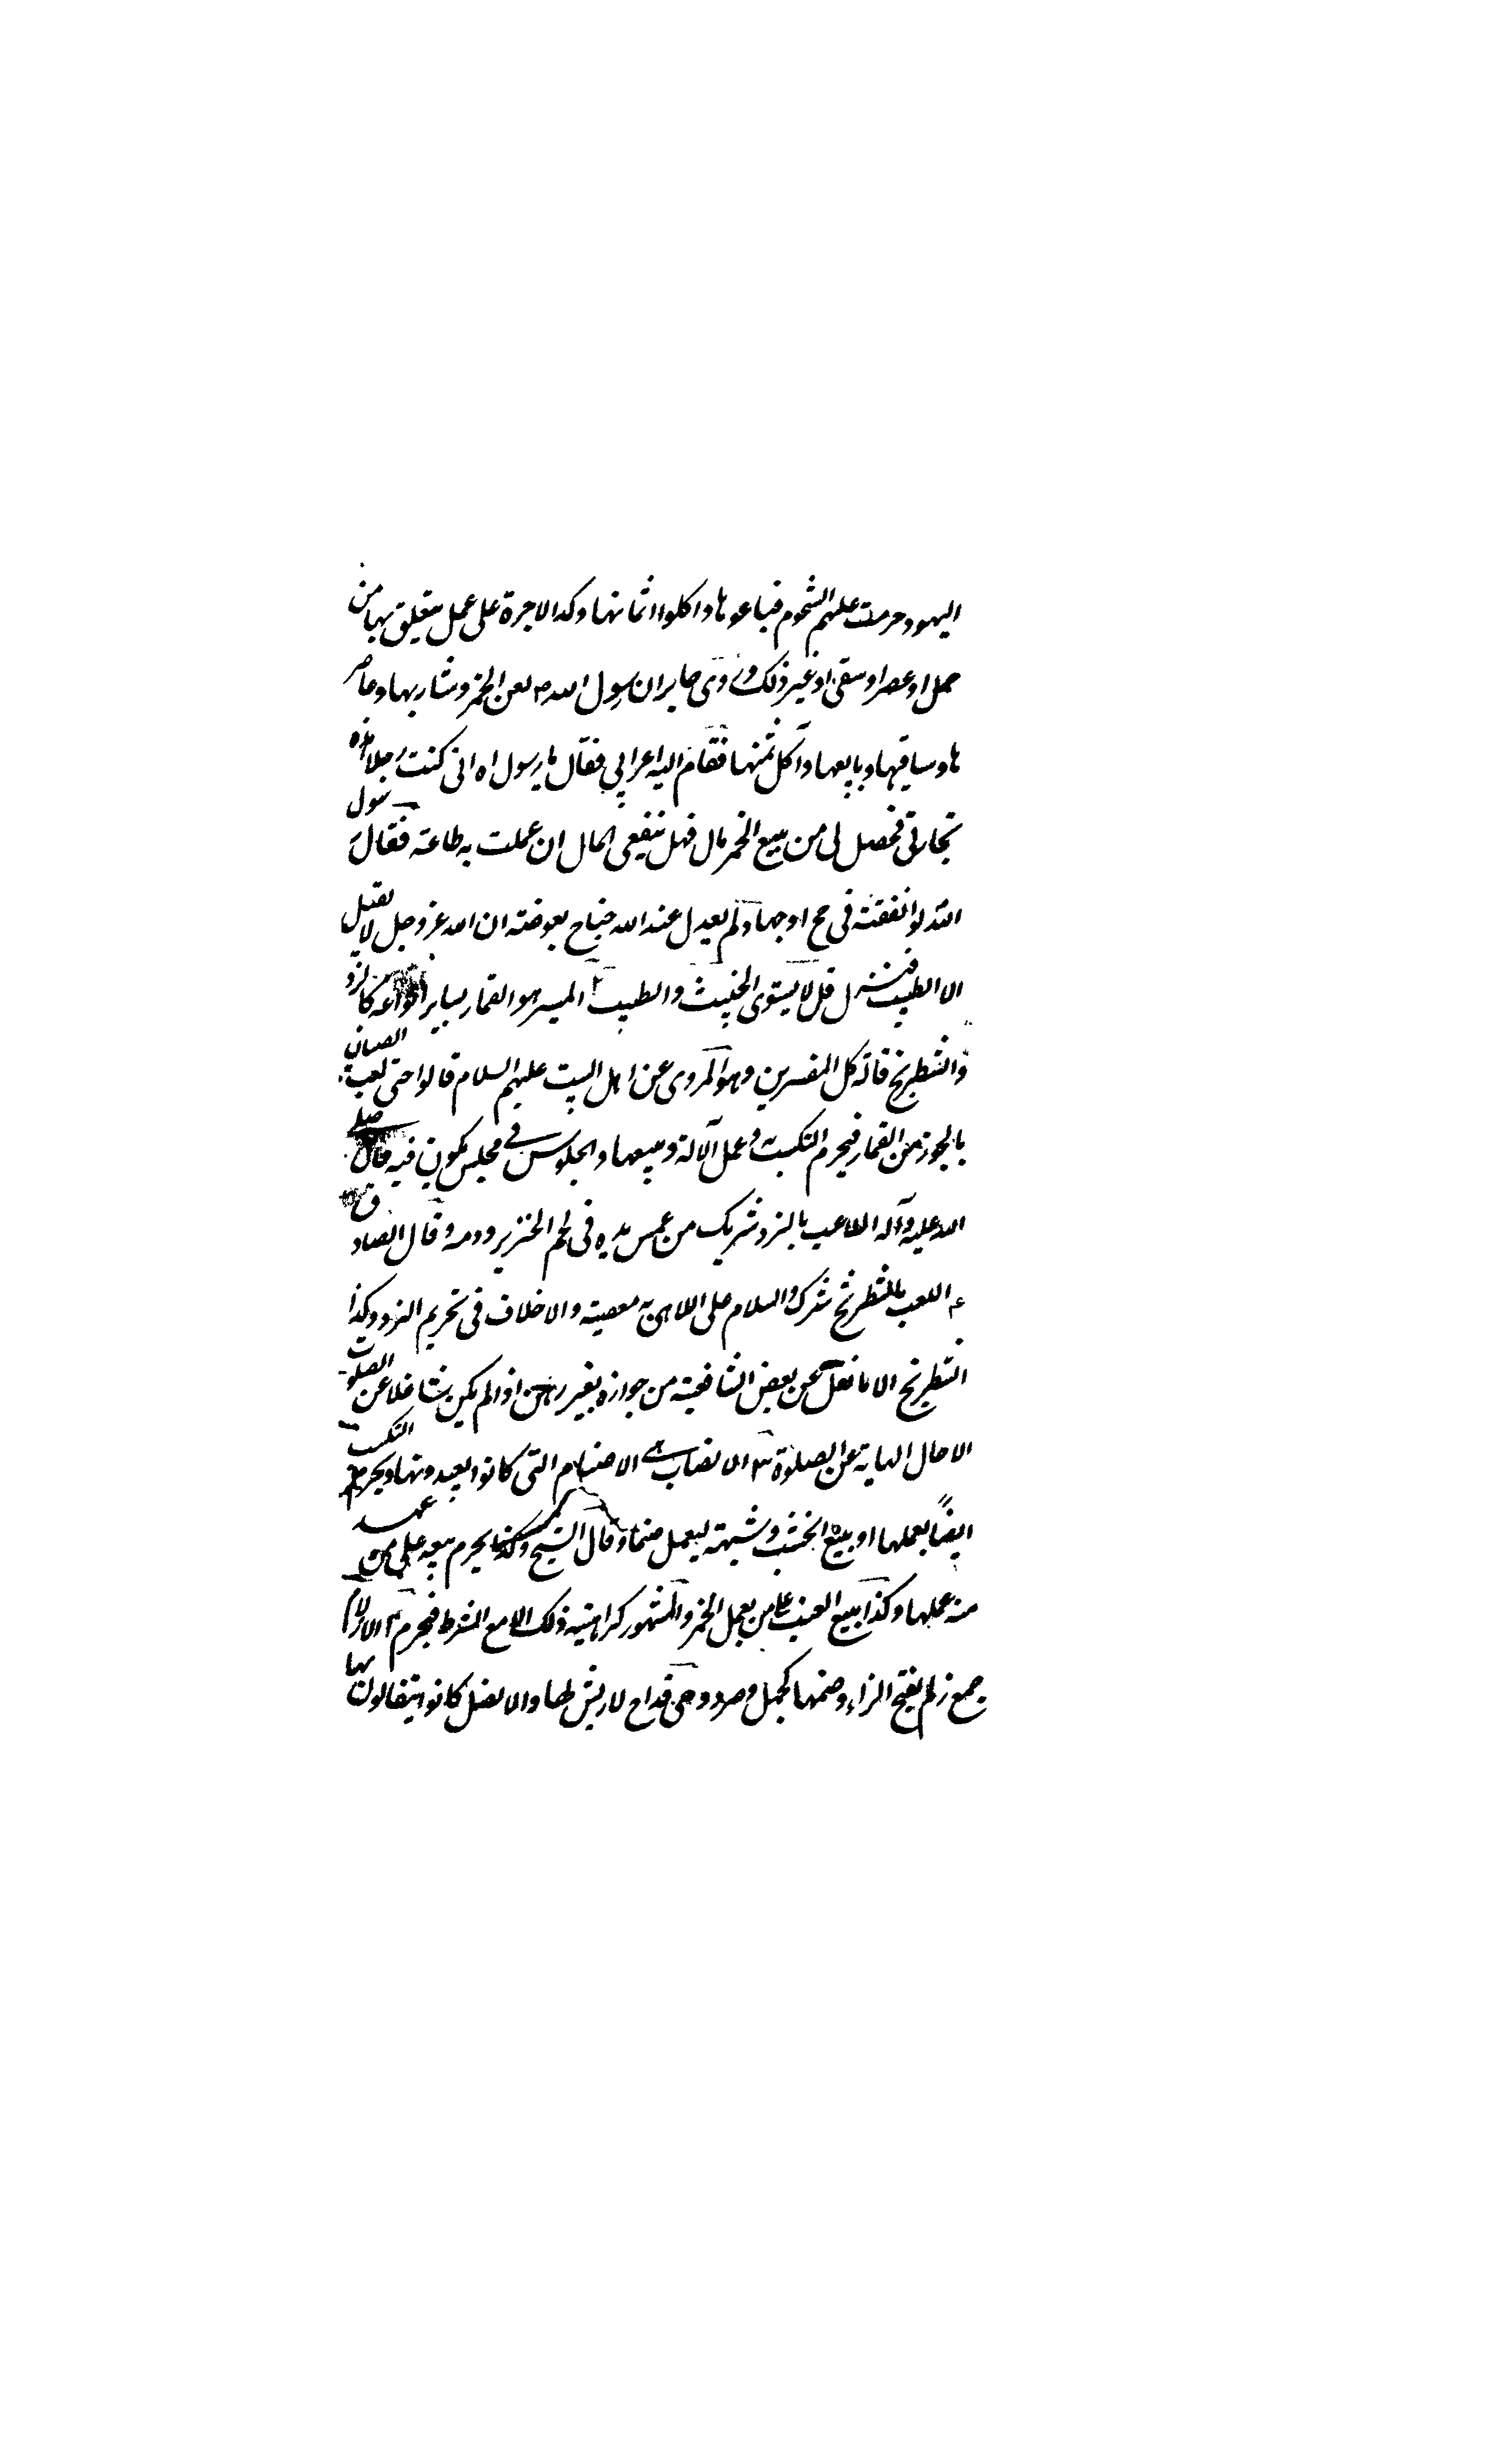 اليهود حرمت عليهم الشحوم فباعوها واكلوا اثمانها وكذا الاجرة على عمل يتعلق بها من
حمل او عصر او سقى او غير ذلك وروى جابر ان رسول الله ص لعن الخمر وشاربها وعاصر
ها وساقيها وبايعها وآكل ثمنها فقام اليه اعرابي فقال يا رسول الله انى كنت رجلا هذه
تجارتى فحصل لى من بيع الخمر مال فهل ينفعنى المال ان عملت به طاعة فقال رسول
الله لو انفقته في حج او جهاد لم يعدل عند الله جناح بعوضة ان الله عز وجل لا يقبل
الا الطيب فنزل قل لا يستوى الخبيث والطيب ٢ الميسر هو القمار بساير انواعه كالنرد
والشطرنج قاله كل المفسرين وهو المروى عن اهل البيت عليهم السلام قالوا حتى لعب الصبيان
بالجوز من القمار فيحرم التكسب به وعمل آلاته وبيعها والجلوس في مجلس يكون فيه قال صلى
الله عليه وآله اللاعب بالنرد شريك من غمس يده فى لحم الخنزير ودمه وقال الصادق
ع اللعب بالشطرنج شرك والسلام على اللاهى به معصية والاخلاف فى تحريم النرد وكذا
الشطرنج الا ما نقل عن بعض الشافعية من جوازه بغير رهن اذا لم يكن شاغلا عن الصلوت
الاحال الهاية عن الصلوة ٣ الانصاب هى الاصنام التى كانوا يعبدونها ويحرم التكسب
ايضا بعملها او بيع الخشب وشبهه ليعمل صنما وقال الشيخ وكذا يحرم بيعه على من عهد
منه عملها وكذا بيع العنب على من يعمل الخمر والمشهور كراهية ذلك الا مع الشرط فيحرم ٤ الازلام
جمع زلم بفتح الزاء وضمها كجمل وصرد وهى قداح لا ريش لها والا نصل كانوا يتفالون بها